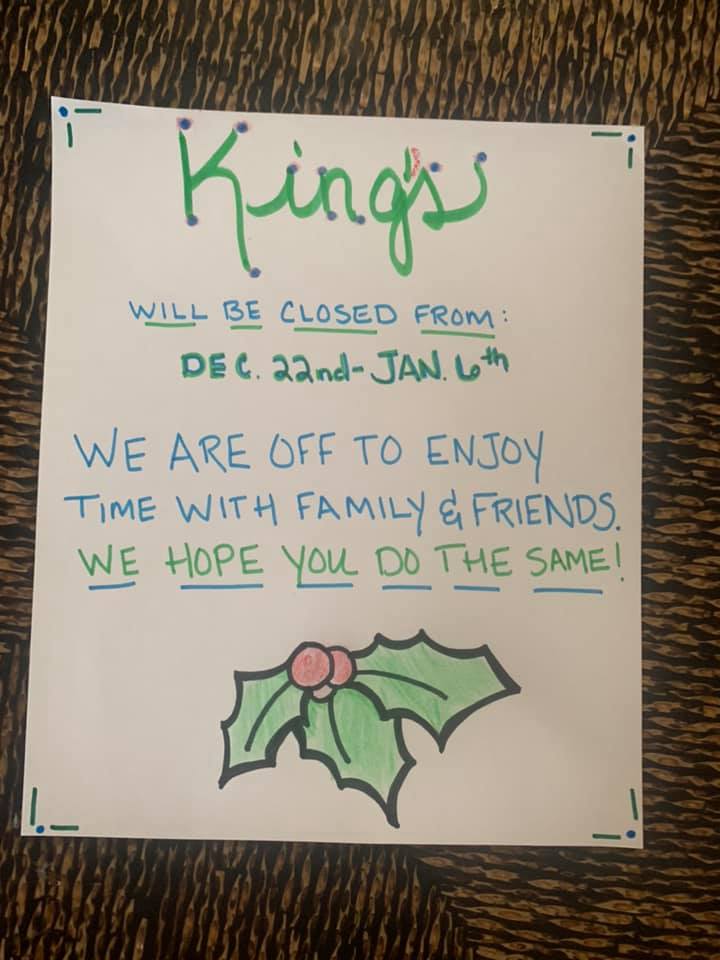 King's
WILL BE CLOSED FROM:
DEC. 22nd-JAN. 6th
WE ARE OFF TO ENJOY
TIME WITH FAMILY & FRIENDS.
WE HOPE YOU DO THE SAME!